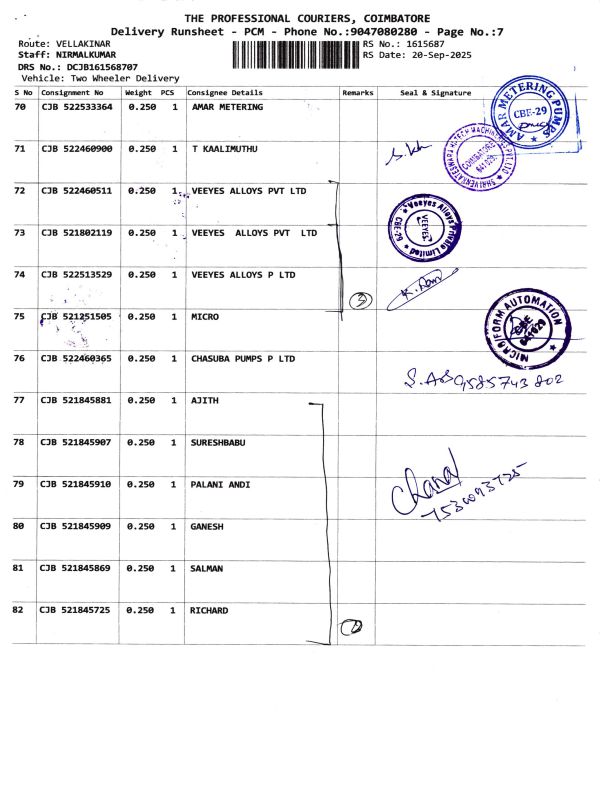 THE PROFESSIONAL COURIERS, COIMBATORE
Delivery Runsheet - PCM - Phone No.:9047080280 - Page No.:7
Route: VELLAKINAR RS No.: 1615687
Staff: NIRMALKUMAR RS Date: 20-Sep-2025
DRS No.: DCJB161568707
Vehicle: Two Wheeler Delivery
S No Consignment No Weight PCS Consignee Details Remarks Seal & Signature
70 CJB 522533364 0.250 1 AMAR METERING
AMAR METERING PUMPS
CBE-29
71 CJB 522460900 0.250 1 T KAALIMUTHU
COIMBATORE
72 CJB 522460511 0.250 1 VEEYES ALLOYS PVT LTD
Veeyes Alloys Private Limited
VEEYES
CBE-29
73 CJB 521802119 0.250 1 VEEYES ALLOYS PVT LTD
74 CJB 522513529 0.250 1 VEEYES ALLOYS P LTD
3
75 CJB 521251505 0.250 1 MICRO
MICRO FORM AUTOMATION
CBE
641029
76 CJB 522460365 0.250 1 CHASUBA PUMPS P LTD
9585743802
77 CJB 521845881 0.250 1 AJITH
78 CJB 521845907 0.250 1 SURESHBABU
79 CJB 521845910 0.250 1 PALANI ANDI
80 CJB 521845909 0.250 1 GANESH
81 CJB 521845869 0.250 1 SALMAN
82 CJB 521845725 0.250 1 RICHARD